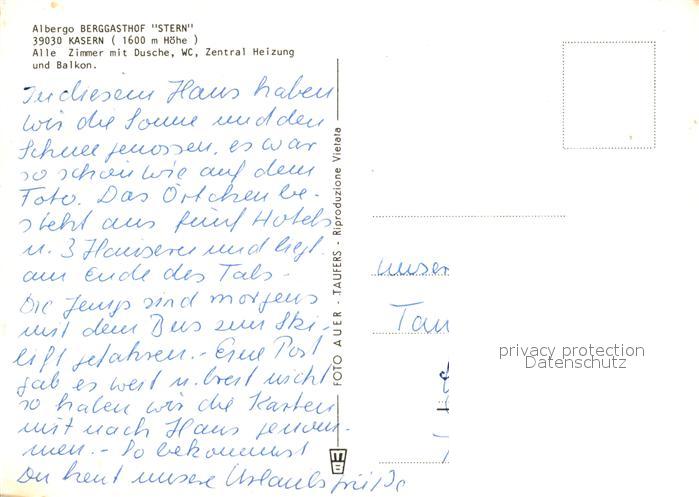 Albergo BERGGASTHOF "STERN"
39030 KASERN ( 1600 m Höhe )
Alle Zimmer mit Dusche, WC, Zentral Heizung
und Balkon.
In diesem Haus haben
wir die Sonne und den
Schnee genossen, es war
so schön wie auf dem
Foto. Das Örtchen be-
steht aus fünf Hotels
u. 3 Häusern und liegt
am Ende des Tals -
Die Jungs sind morgens
mit dem Bus zum Ski-
lift gefahren. - Eine Post
gab es weit u. breit nicht
so haben wir die Karten
mit nach Haus genom-
men. - So bekommst
Du heut unsere Urlaubsgrüße
FOTO AUER - TAUFERS - Riproduzione Vietata
unser
Tan
privacy protection
Datenschutz